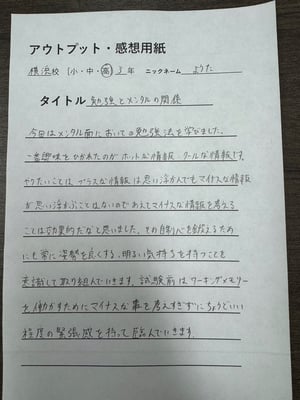 アウトプット・感想用紙
横浜校 (小・中・高) 3年 ニックネーム ようた
タイトル 勉強とメンタルの関係
今日はメンタル面においての勉強法を学びました。
一番興味をひかれたのがホットな情報、クールな情報です。
やりたいことは、プラスな情報は思い浮かんでもマイナスな情報
が思い浮かぶことはないのであえてマイナスな情報を考える
ことは効果的だなと思いました。その自制心を鍛えるため
にも常に姿勢を良くする、明るい気持ちを持つことを
意識して取り組んでいきます。試験前はワーキングメモリー
を働かすためにマイナスな事を考えすぎずにちょうどいい
程度の緊張感を持って臨んでいきます。